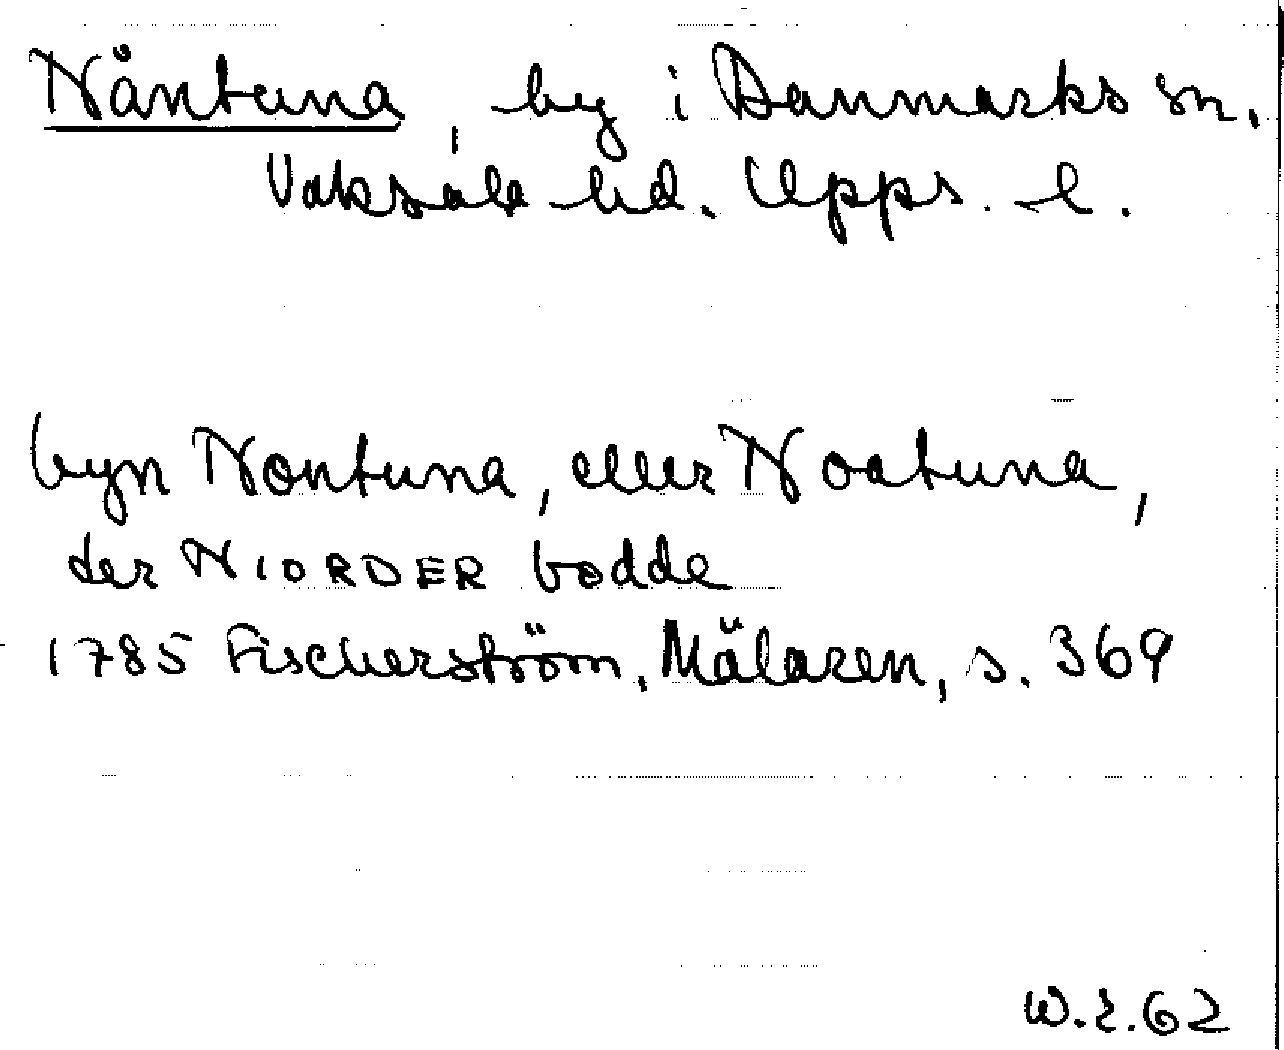 Nåntuna, by i Danmarks sn.
Vaksala hd. Upps. l.
byn Nontuna, eller Noatuna,
der NIORDER bodde
1785 Fischerström, Mälaren, s. 369
W.E.62